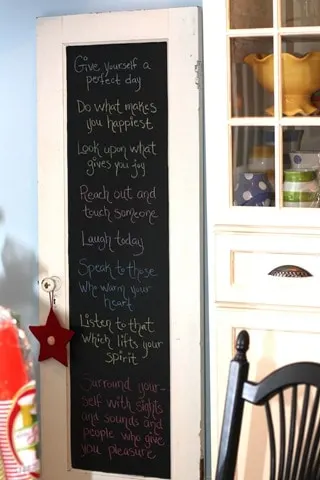 Give yourself a
perfect day
Do what makes
you happiest
Look upon what
gives you joy
Reach out and
touch someone
Laugh today
Speak to those
who warm your
heart
Listen to that
which lifts your
spirit
Surround your-
self with sights
and sounds and
people who give
you pleasure